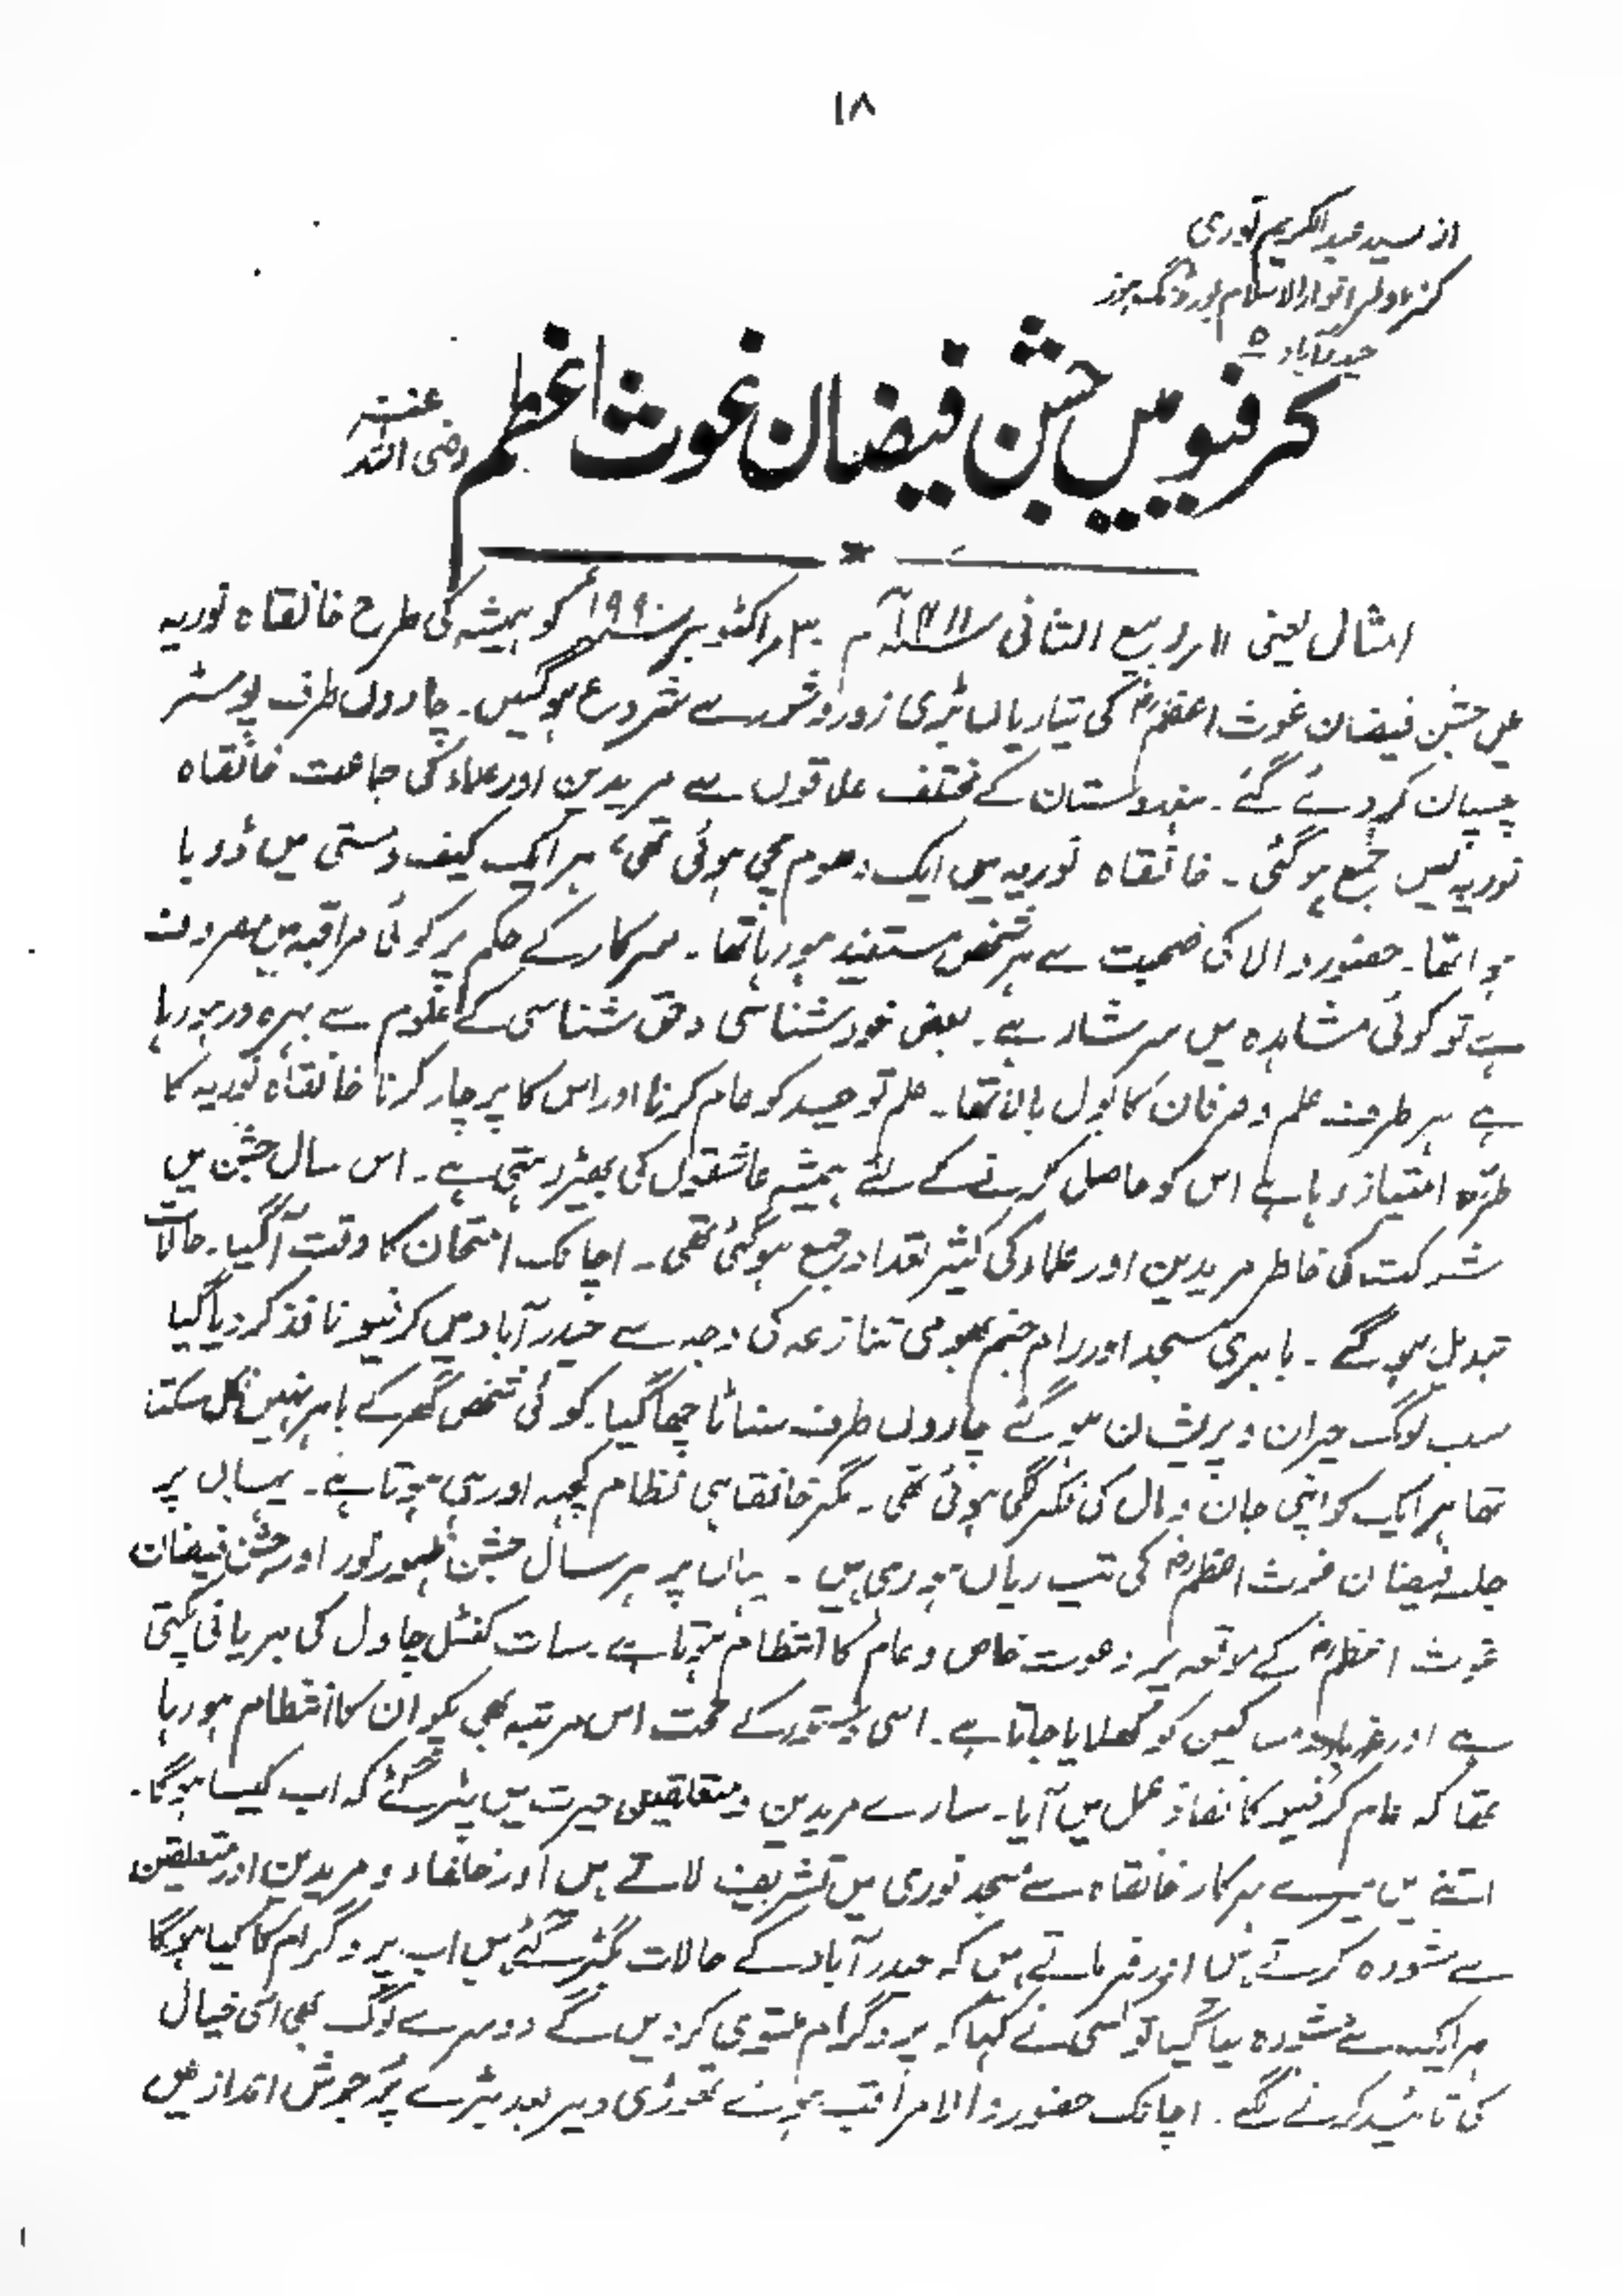 ۱۸
از سید عبدالکریم نوری
کنز انوار الاسلام بورڈنگ ہوز
حیدرآباد ۵
کرفیو میں جشن فیضان غوث اعظم رضی اللہ عنہ
امثال یعنی ۱۱ ربیع الثانی ۱۴۱۱ھ م ۳۰ اکٹوبر ۱۹۹۰ء کو ہمیشہ کی طرح خانقاہ نوریہ
میں جشن فیضان غوث اعظمؓ کی تیاریاں بڑی زور و شور سے شروع ہوگئیں۔ چاروں طرف پوسٹر
چسپاں کر دئے گئے۔ ہندوستان کے مختلف علاقوں سے مریدین اور علماء کی جماعت خانقاہ
نوریہ میں جمع ہوگئی۔ خانقاہ نوریہ میں ایک دھوم مچی ہوئی تھی، ہر ایک کیف و مستی میں ڈوبا
ہوا تھا۔ حضور والا کی صحبت سے ہر شخص مستفید ہو رہا تھا۔ سرکار کے حکم پر کوئی مراقبہ میں مصروف
ہے تو کوئی مشاہدہ میں سرشار ہے۔ بعض خود شناسی و حق شناسی کے علوم سے بہرہ ور ہو رہا
ہے ہر طرف علم و عرفان کا بول بالا تھا۔ علم توحید کو عام کرنا اور اس کا پرچار کرنا خانقاہ نوریہ کا
طرۂ امتیاز رہا ہے اس کو حاصل کرنے کے لئے ہمیشہ عاشقوں کی بھیڑ رہتی ہے۔ اس سال جشن میں
شرکت کی خاطر مریدین اور علماء کی کثیر تعداد جمع ہوگئی تھی۔ اچانک امتحان کا وقت آگیا۔ حالات
تبدیل ہو گئے۔ بابری مسجد اور رام جنم بھومی تنازعہ کی وجہ سے حیدرآباد میں کرفیو نافذ کر دیا گیا
سب لوگ حیران و پریشان ہو گئے چاروں طرف سناٹا چھا گیا۔ کوئی شخص گھر کے باہر نہیں نکل سکتا
تھا ہر ایک کو اپنی جان و مال کی فکر لگی ہوئی تھی۔ مگر خانقاہی نظام کچھ اور ہی ہوتا ہے۔ یہاں پر
جلسہ فیضان غوث اعظمؓ کی تیاریاں ہو رہی ہیں۔ یہاں پر ہر سال جشن ظہور نور اور جشن فیضان
غوث اعظمؓ کے موقعہ پر دعوت خاص و عام کا انتظام ہوتا ہے۔ سات کنٹل چاول کی بریانی پکتی
ہے اور غرباء و مساکین کو کھلایا جاتا ہے۔ اسی دستور کے تحت اس مرتبہ بھی پکوان کا انتظام ہو رہا
تھا کہ عام کرفیو کا نفاذ عمل میں آیا۔ سارے مریدین و متعلقین حیرت میں پڑ گئے کہ اب کیسا ہوگا۔
اتنے میں میرے سرکار خانقاہ سے مسجد نوری میں تشریف لاتے ہیں اور خلفاء و مریدین اور متعلقین
سے مشورہ کرتے ہیں اور فرماتے ہیں کہ حیدرآباد کے حالات بگڑ گئے ہیں اب پروگرام کا کیا ہوگا
ہر ایک سے مشورہ لیا گیا تو کسی نے کہا کہ پروگرام ملتوی کر دیں گے دوسرے لوگ بھی اسی خیال
کی تائید کرنے لگے۔ اچانک حضور والا مراقب ہوئے تھوڑی دیر بعد بڑے پُرجوش انداز میں